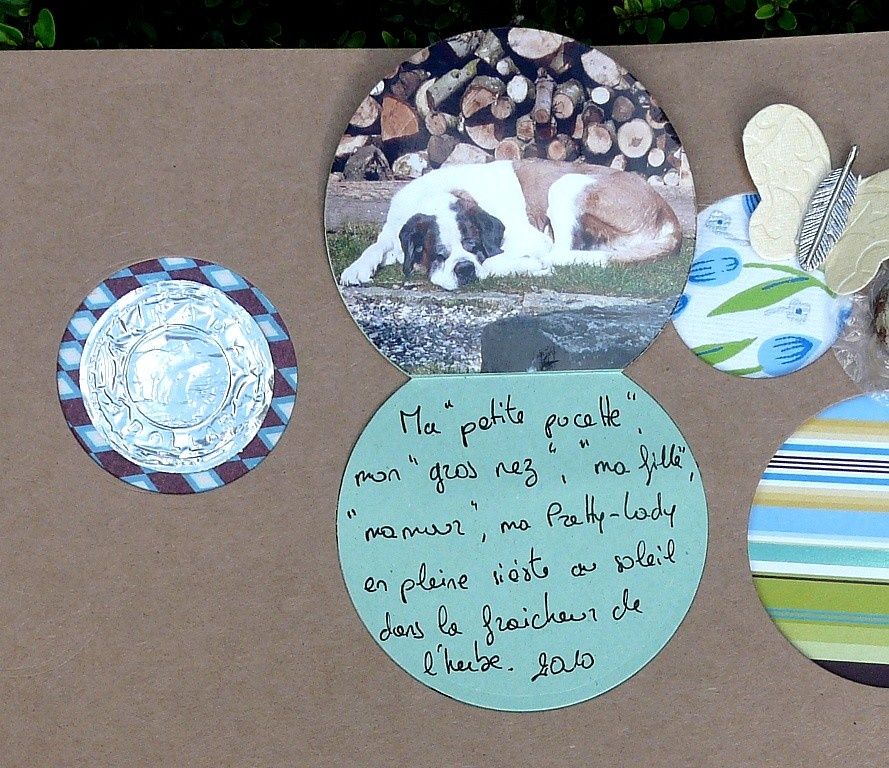 Ma "petite pucette",
mon "gros nez", "ma fille",
"mamour", ma Pretty-Lady
en pleine sieste au soleil
dans la fraicheur de
l'herbe. 2010